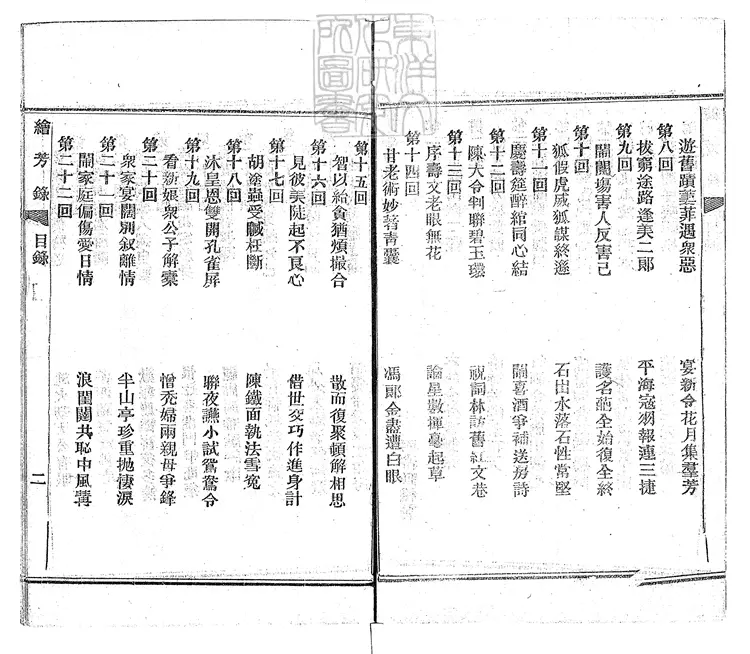 東洋文化研究所圖書
遊舊蹟萋菲遇衆惡　宴新令花月集羣芳
第八回
拔窮途路逢美二郎　平海寇羽報連三捷
第九回
鬧闈場害人反害己　護名葩全始復全終
第十回
狐假虎威狐謀終遜　石出水落石性當堅
第十一回
慶壽筵醉綰同心結　鬧喜酒爭補送房詩
第十二回
陳大令判聯碧玉環　祝詞林訪舊紅文巷
第十三回
序壽文老眼無花　論星數揮毫起草
第十四回
甘老術妙著青囊　馮郎金盡遭白眼
第十五回
智以給貪猶煩撮合　散而復聚頓解相思
第十六回
見彼美陡起不良心　借世交巧作進身計
第十七回
胡塗蟲受贓枉斷　陳鐵面執法雪冤
第十八回
沐皇恩雙開孔雀屏　聯夜讌小試鴛鴦令
第十九回
看新娘衆公子解橐　憎禿婦兩親母爭鋒
第二十回
衆家宴闊別叙離情　半山亭珍重拋悽淚
第二十一回
鬧家庭偏傷愛日情　浪閨闥共恥中風冓
第二十二回
繪芳錄
目錄
二